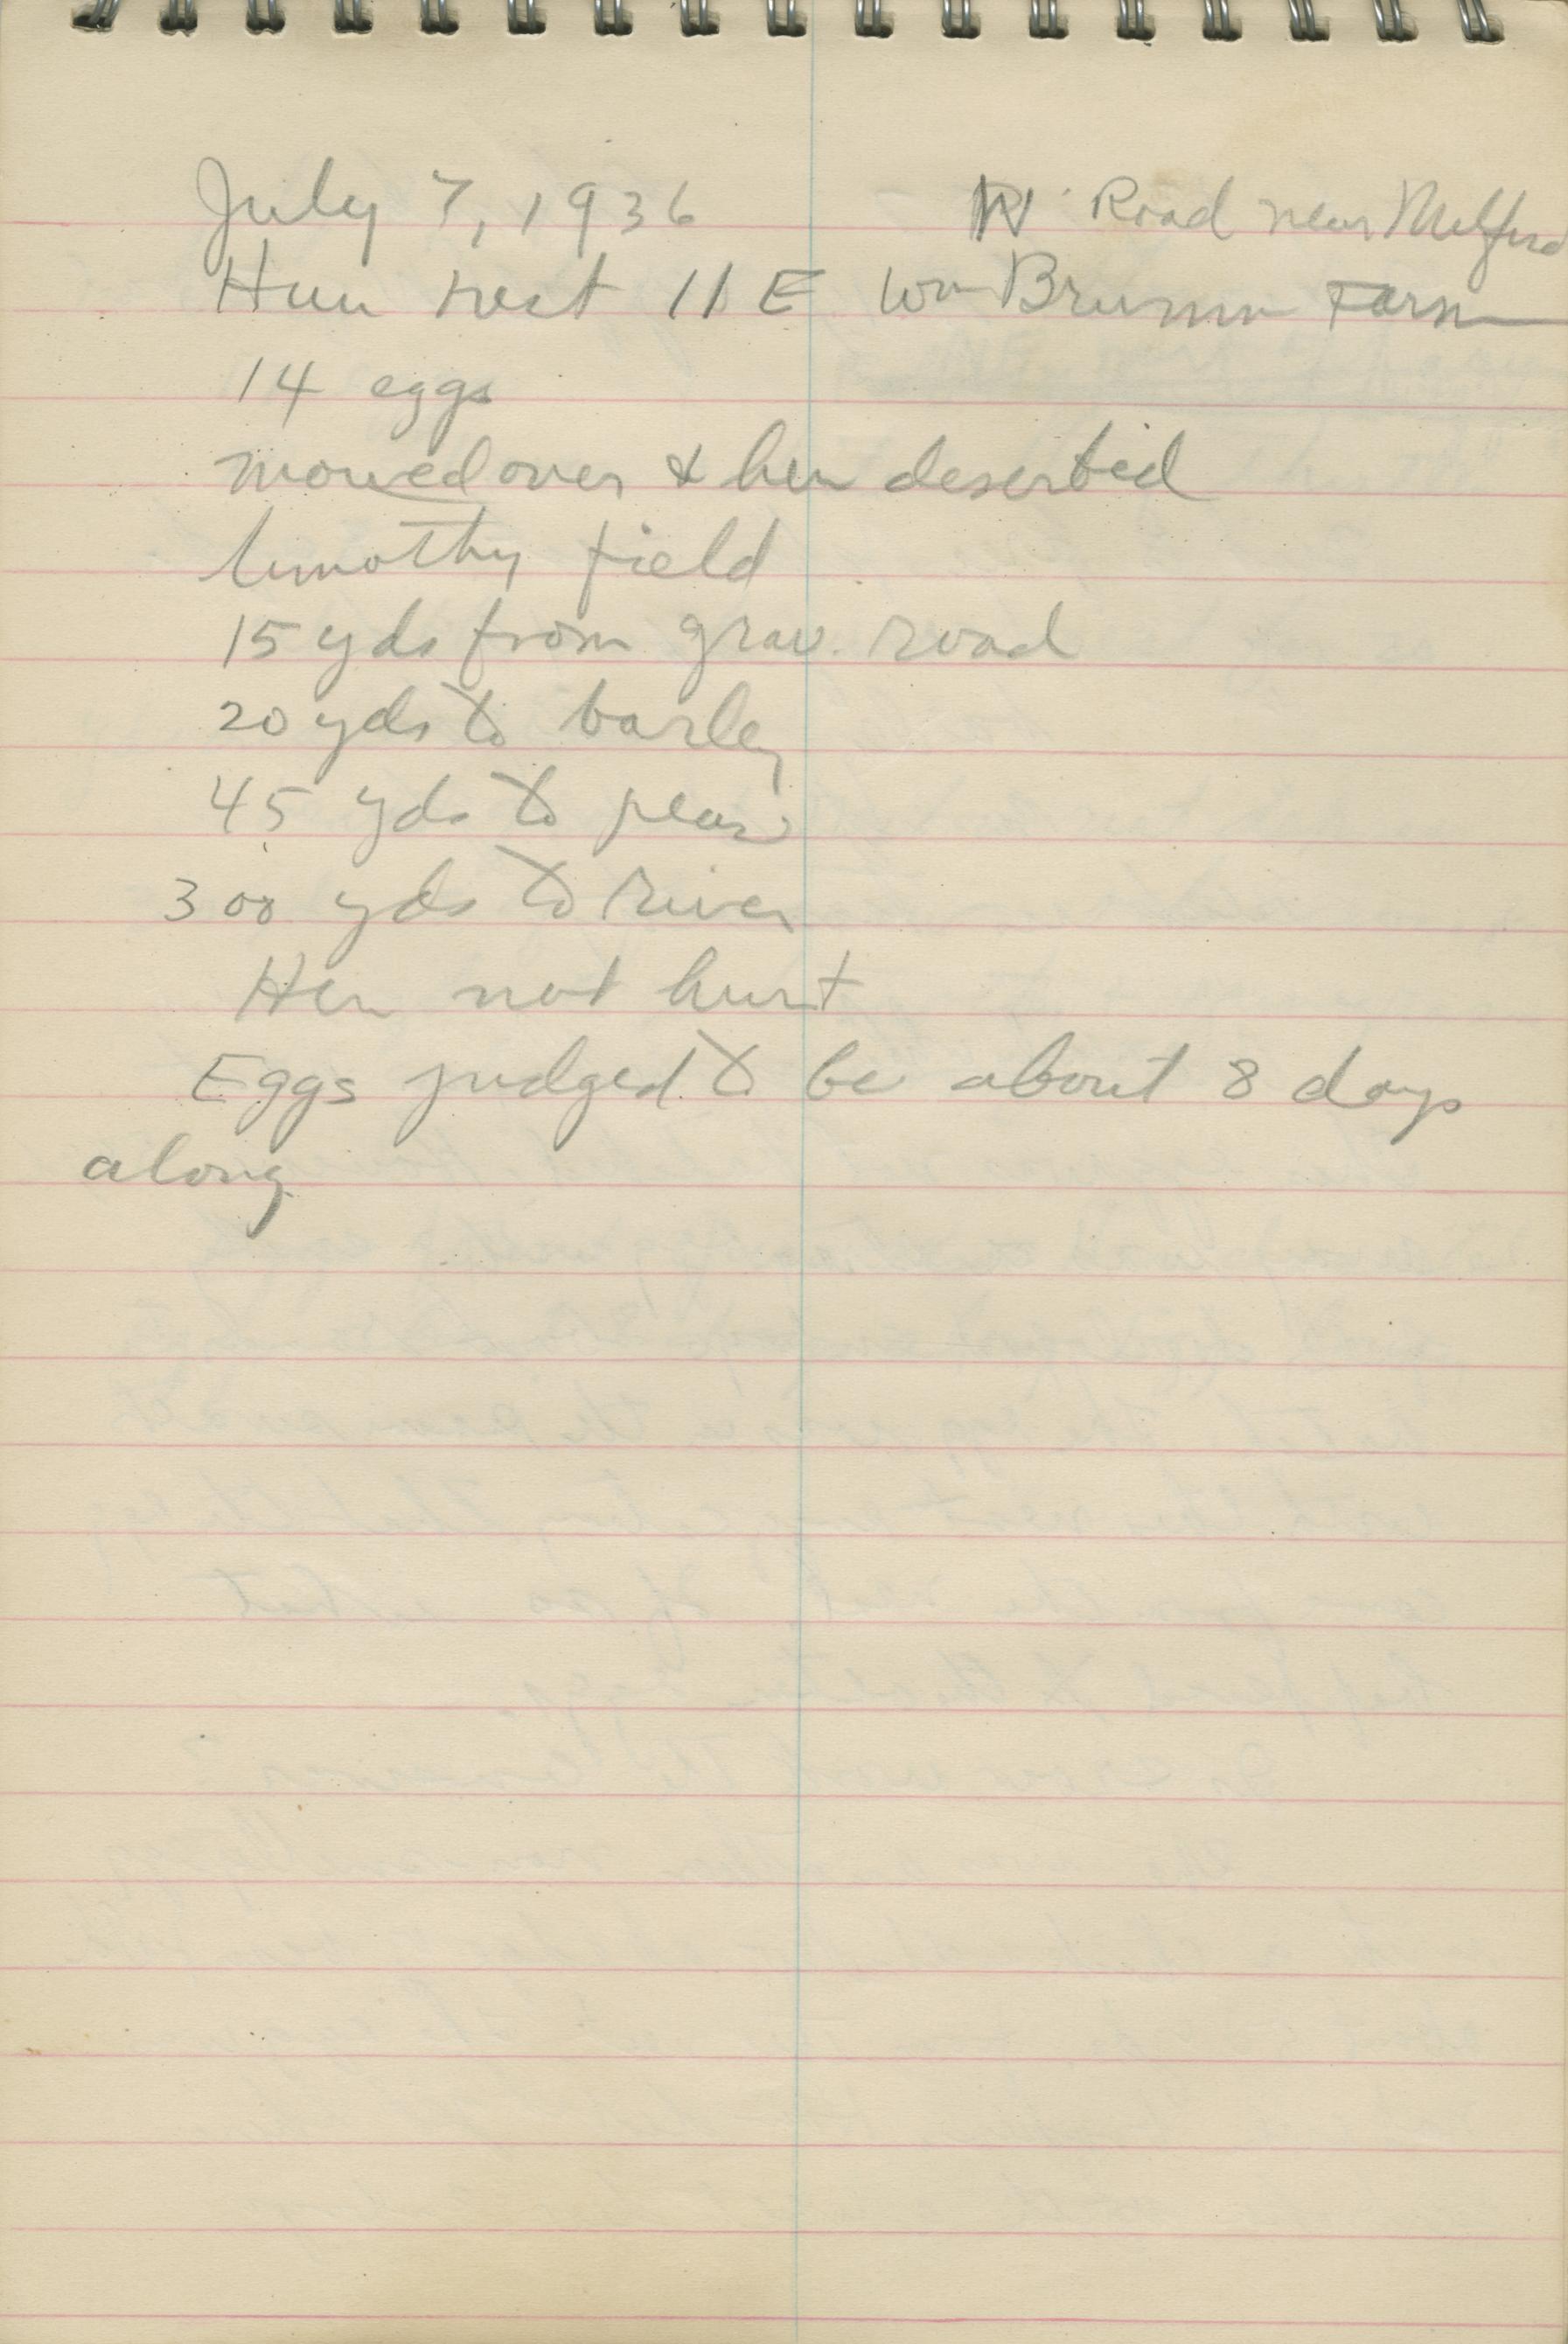 July 7, 1936 Road near Milford
Hun nest 11 E Wm Brumm Farm
14 eggs
mowed over & hen deserted
timothy field
15 yds from grav. road
20 yds to barley
45 yds to peas
300 yds to river
Hen not hurt
Eggs judged to be about 8 days
along